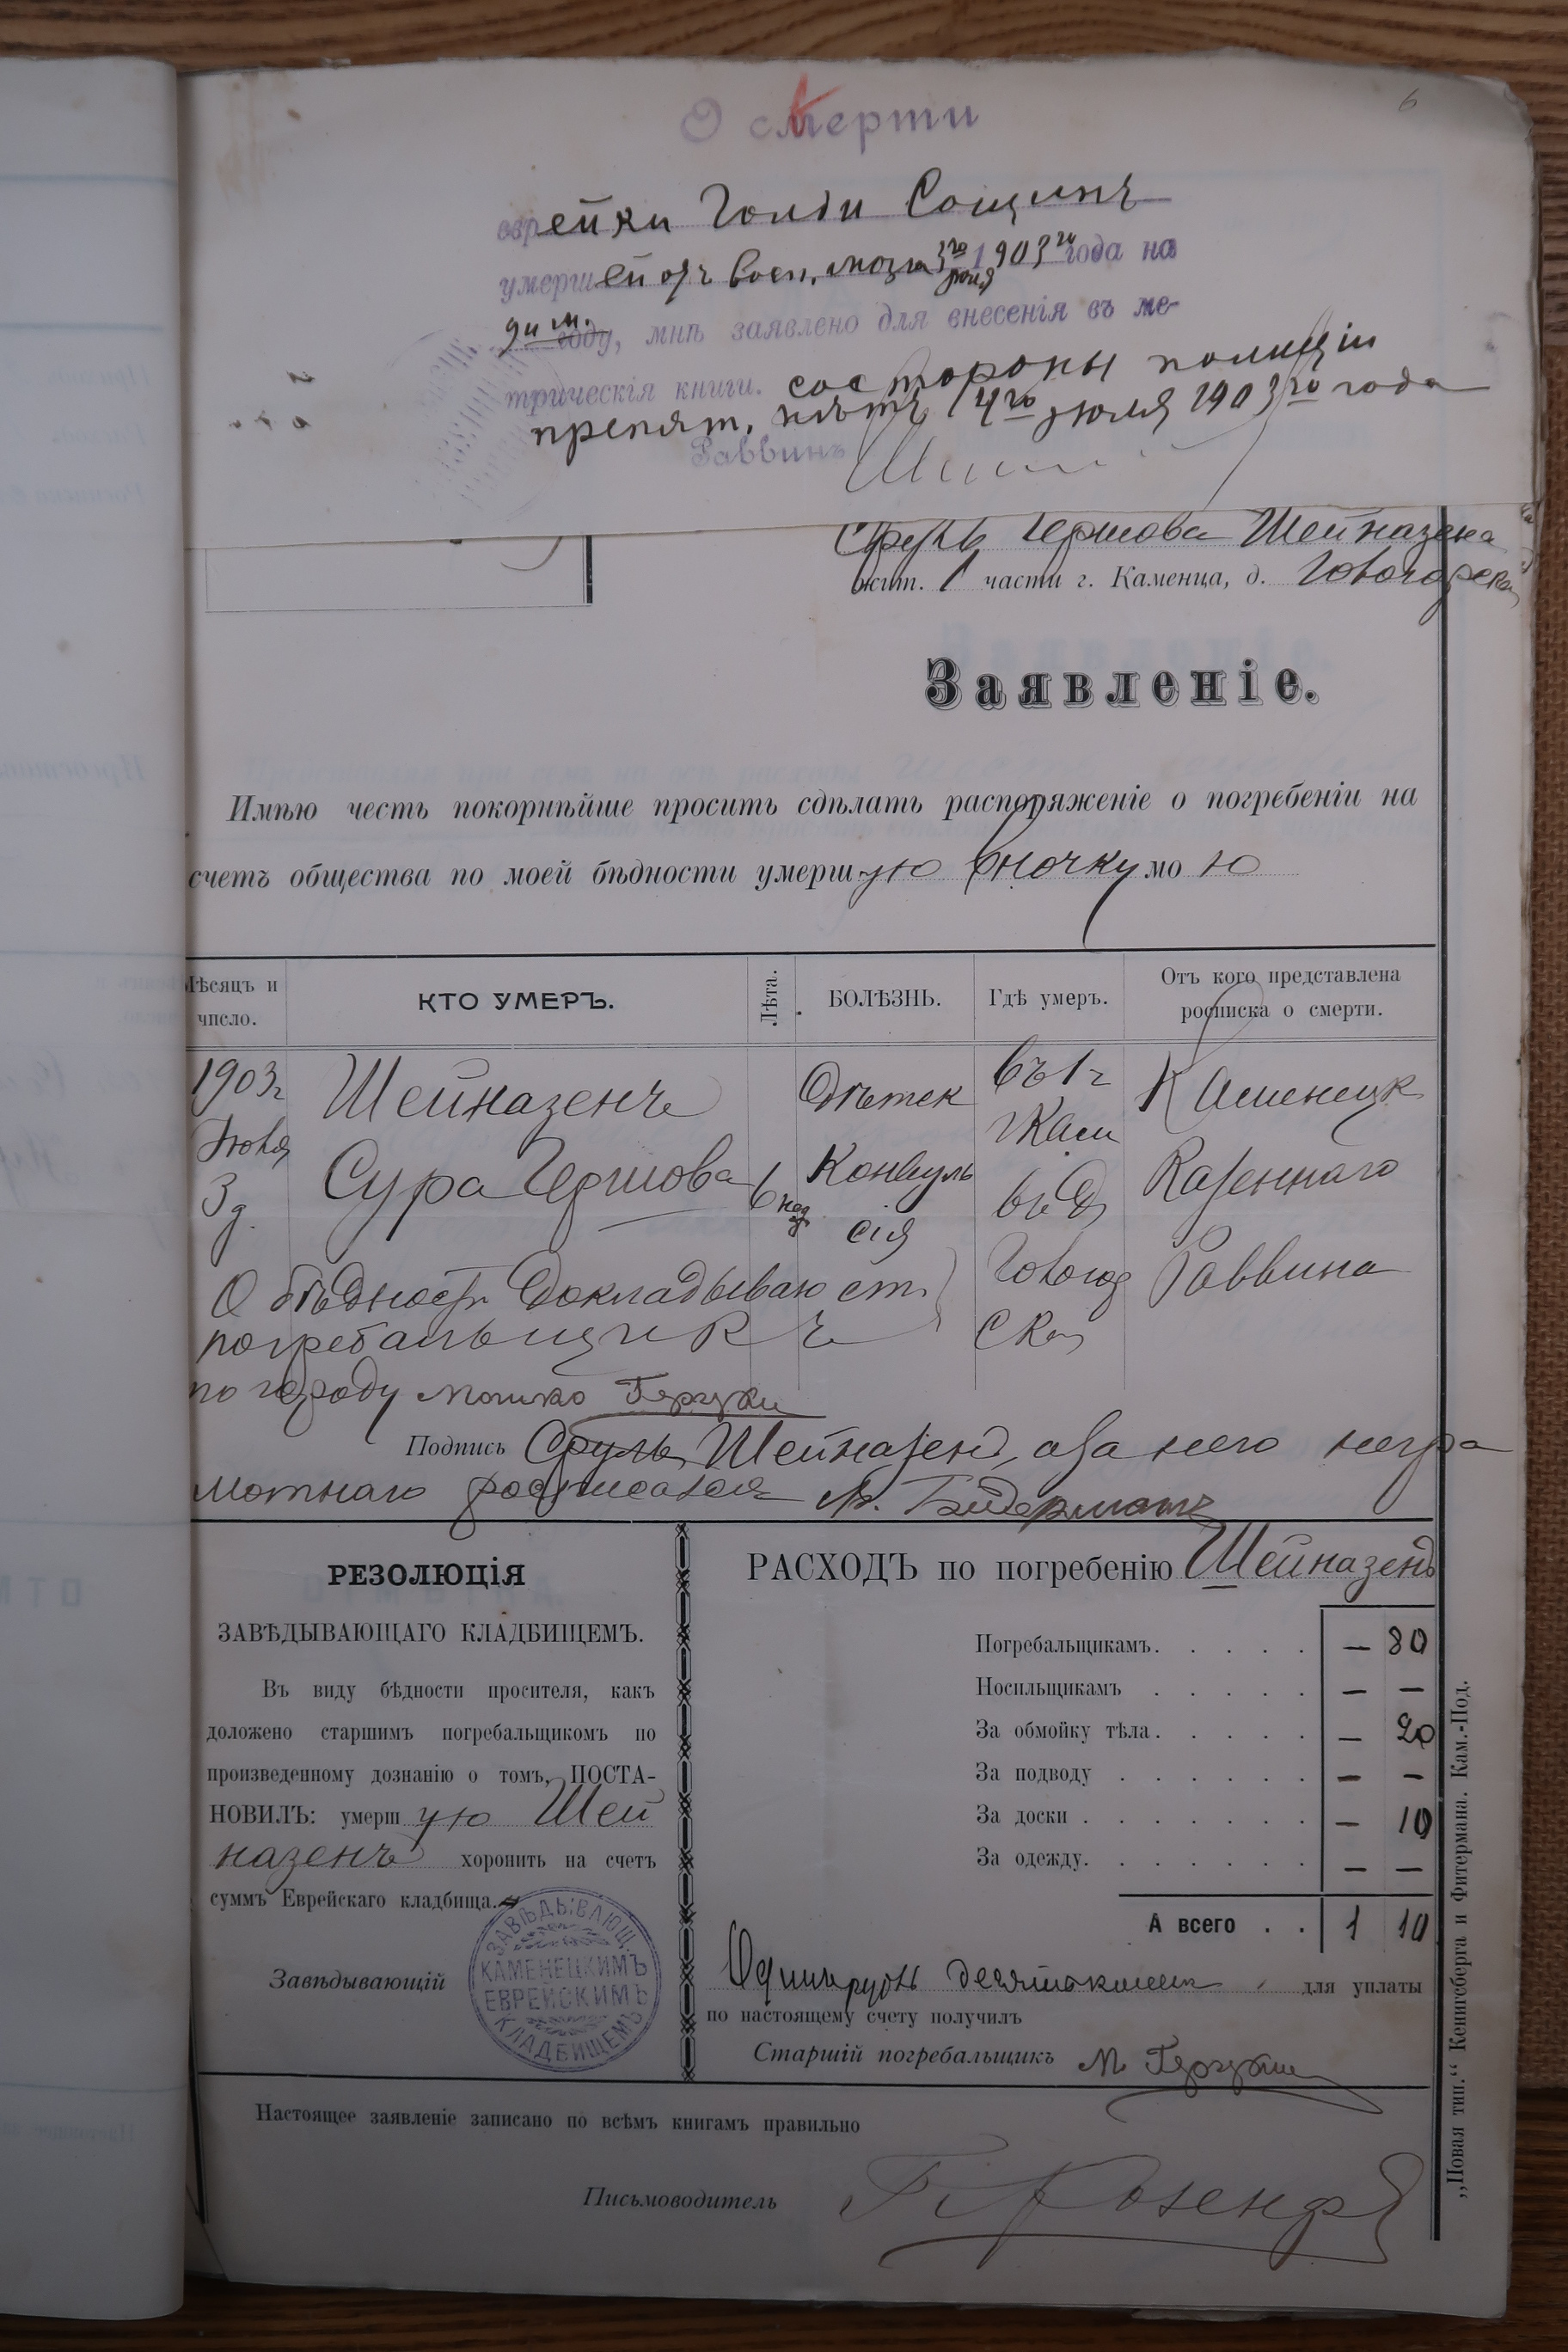 6
О смерти
еврейки Голди Сощинъ
умершей отъ восп. мозга 3го июля 1903го года на
9и м. году, мнѣ заявлено для внесенія въ ме-
трическія книги. со стороны полиціи
препят. нѣтъ 14го июля 1903го года
Раввинъ
Сруль Гершова Шейназена
жит. 1 части г. Каменца, д.
Заявленіе.
Имѣю честь покорнѣйше просить сдѣлать распоряженіе о погребеніи на
счетъ общества по моей бѣдности умершую вночку мою
Мѣсяцъ и число. КТО УМЕРЪ. Лѣта. БОЛѢЗНЬ. Гдѣ умеръ. Отъ кого представлена росписка о смерти.
1903г Шейназенъ Отъ въ 1г Каменецк
Июля Сура Гершова 6 нед Конвуль Казеннаго
3 д. сія Раввина
О бѣдности Докладываю ст.
погребальщикъ
по городу Мошко
Подпись Сруль Шейназенъ, а за него негра
мотнаго росписался
РЕЗОЛЮЦІЯ
ЗАВѢДЫВАЮЩАГО КЛАДБИЩЕМЪ.
Въ виду бѣдности просителя, какъ
доложено старшимъ погребальщикомъ по
произведенному дознанію о томъ, ПОСТА-
НОВИЛЪ: умершую Шей
назенъ хоронить на счетъ
суммъ Еврейскаго кладбища.
Завѣдывающій
ЗАВѢДЫВАЮЩ.
КАМЕНЕЦКИМЪ
ЕВРЕЙСКИМЪ
КЛАДБИЩЕМЪ
РАСХОДЪ по погребенію Шейназенъ
Погребальщикамъ. — 80
Носильщикамъ — —
За обмойку тѣла. — 20
За подводу — —
За доски — 10
За одежду. — —
А всего 1 10
Одинъ рубль десять копеек для уплаты
по настоящему счету получилъ
Старшій погребальщикъ М
Настоящее заявленіе записано по всѣмъ книгамъ правильно
Письмоводитель
„Новая тип.“ Кенигсберга и Фитермана. Кам.-Под.